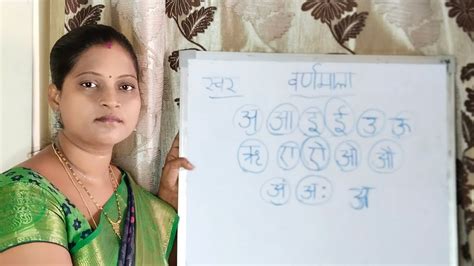 स्वर वर्णमाला
अ आ इ ई उ ऊ
ऋ ए ऐ ओ औ
अं अः अ